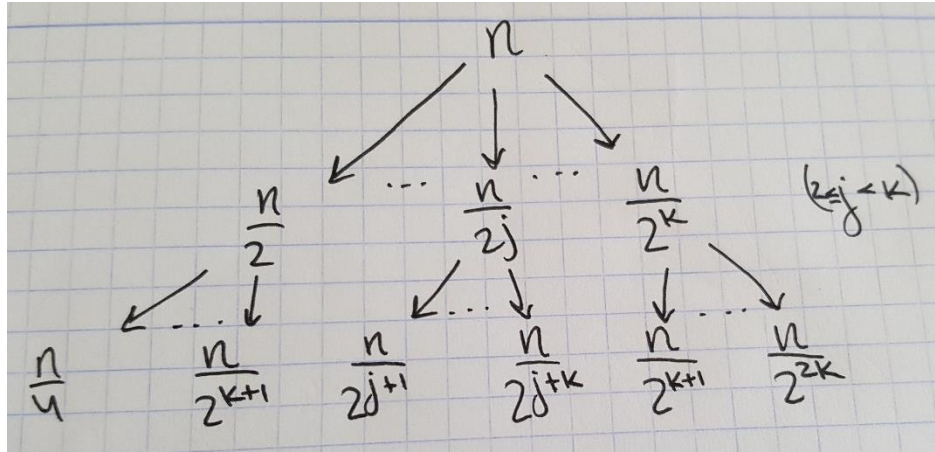 n
n/2 ... n/2^j ... n/2^k (2≤j<k)
n/4 .... n/2^{k+1} n/2^{j+1} .... n/2^{j+k} n/2^{k+1} .... n/2^{2k}